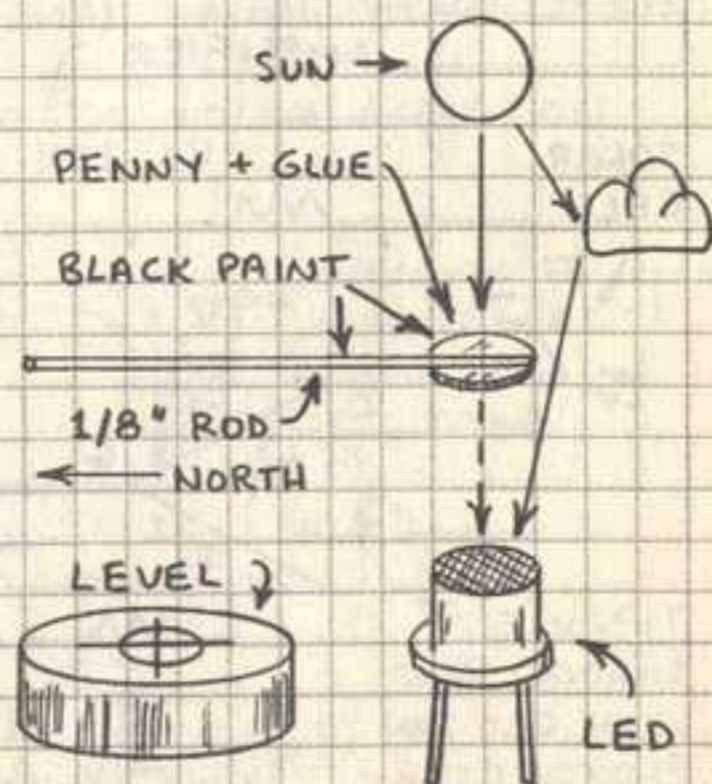 SUN
PENNY + GLUE
BLACK PAINT
1/8" ROD
NORTH
LEVEL
LED